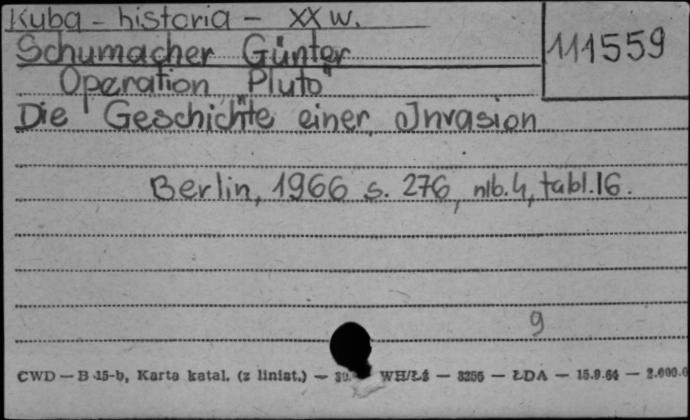 Kuba - historia - XX w.
Schumacher Günter
111559
Operation „Pluto"
Die Geschichte einer Invasion
Berlin, 1966 s. 276, nlb. 4, tabl. 16.
9
CWD — B 15-b, Karta katal. (z liniat.) — WH/Łś — 3256 — ŁDA — 15.9.64 — 2.000.0